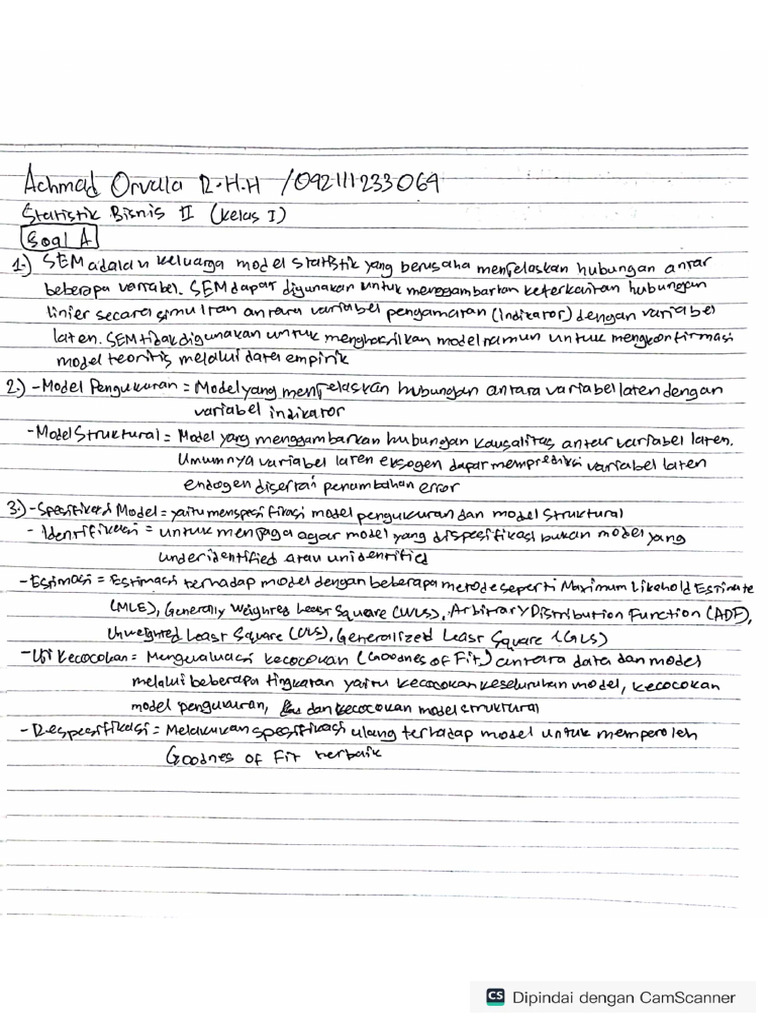 Achmad Orvalla R.H.H /092111233069
Statistik Bisnis II (Kelas I)
Soal A
1.) SEM adalah keluarga model statistik yang berusaha menjelaskan hubungan antar
beberapa variabel. SEM dapat digunakan untuk menggambarkan keterkaitan hubungan
linier secara simultan antara variabel pengamatan (Indikator) dengan variabel
laten. SEM tidak digunakan untuk menghasilkan model namun untuk mengkonfirmasi
model teoritis melalui data empirik
2.) - Model Pengukuran = Model yang menjelaskan hubungan antara variabel laten dengan
variabel indikator
- Model Struktural = Model yang menggambarkan hubungan kausalitas antar variabel laten.
Umumnya variabel laten eksogen dapat memprediksi variabel laten
endogen disertai penambahan error
3.) - Spesifikasi Model = yaitu menspesifikasi model pengukuran dan model struktural
- Identifikasi = untuk menjaga agar model yang dispesifikasi bukan model yang
underidentified atau unidentified
- Estimasi = Estimasi terhadap model dengan beberapa metode seperti Maximum Likehold Estimate
(MLE), Generally Weighted Least Square (WLS), Arbitrary Distribution Function (ADF),
Unweighted Least Square (ULS), Generalized Least Square (GLS)
- Uji Kecocokan = Mengevaluasi kecocokan (Goodnes of Fit) antara data dan model
melalui beberapa tingkatan yaitu kecocokan keseluruhan model, kecocokan
model pengukuran, dan kecocokan model struktural
- Respesifikasi = Melakukan spesifikasi ulang terhadap model untuk memperoleh
Goodnes of Fit terbaik
CS Dipindai dengan CamScanner